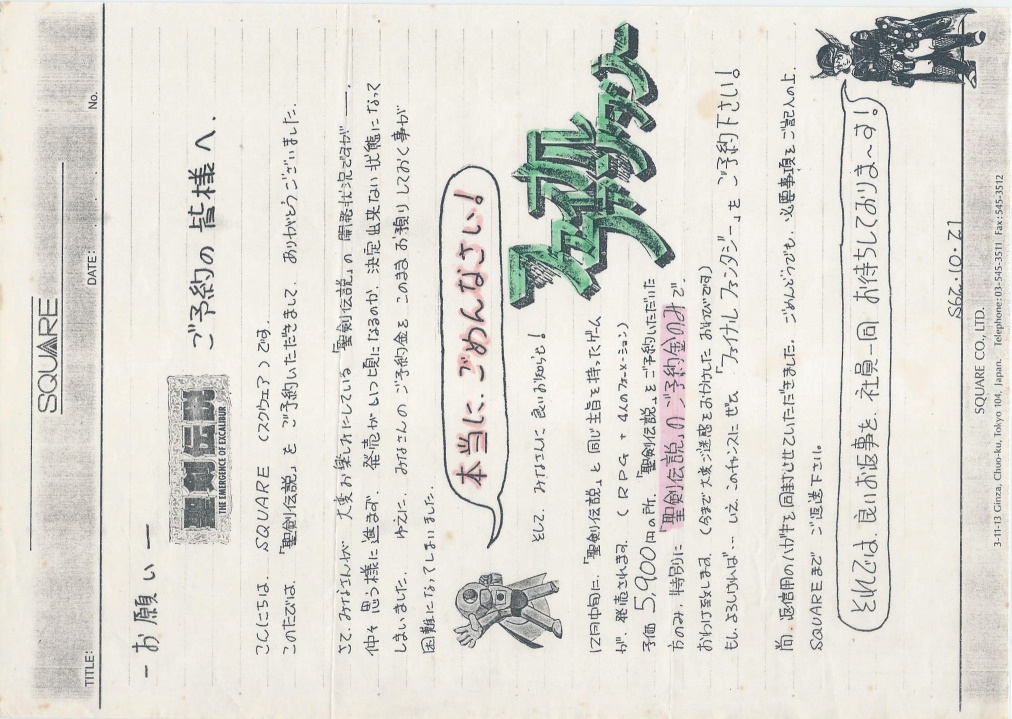 SQUARE
TITLE: DATE: No.
ー お願い ー
聖剣伝説
THE EMERGENCE OF EXCALIBUR
ご予約の 皆様へ.
こんにちは. SQUARE (スクウェア)です.
このたびは.「聖剣伝説」を ご予約いただきまして、ありがとうございました.
さて、みなさんが 大変お楽しみにしている「聖剣伝説」の 開発状況ですが——.
仲々 思う様に進まず. 発売がいつ頃になるのか. 決定出来ない状態になって
しまいました. ゆえに. みなさんの ご予約金を このままお預りしておく事が
困難になってしまいました.
本当に. ごめんなさい!
そして. みなさんに 良いお知らせ!
ファイナル
ファンタジー
12月中旬に.「聖剣伝説」と同じ主旨を持ったゲーム
が. 発売されます. (RPG + 4人のフォーメーション)
定価 5,900円の所.「聖剣伝説」をご予約いただいた
方のみ. 特別に「聖剣伝説」のご予約金のみで.
おわけ致します. (今まで大変ご迷惑をおかけした おわびです)
もし. よろしければ… いえ、このチャンスに ぜひ「ファイナルファンタジー」を ご予約下さい!
尚. 返信用のハガキを同封させていただきました. ごめんどうでも. 必要事項を ご記入の上.
SQUAREまで ご返送下さい.
それでは. 良いお返事を. 社員一同 お待ちしておりま〜す!
S62・10・21
SQUARE CO., LTD.
3-11-13 Ginza, Chuo-ku, Tokyo 104, Japan. Telephone:03-545-3511 Fax:545-3512